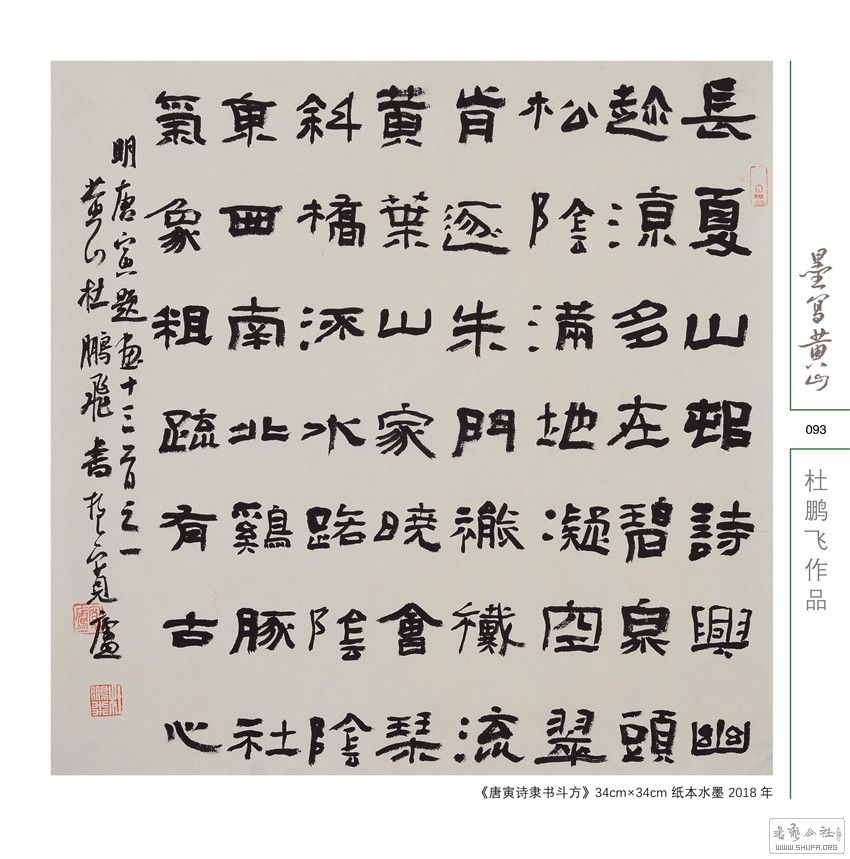 長夏山邨詩興幽
趂涼多在碧泉頭
松陰滿地凝空翠
肯逐朱門褦襶流
黃葉山家曉會琴
斜橋流水路陰陰
東西南北鷄豚社
氣象粗疏有古心
明唐寅題畫十三首之一
黃山杜鵬飛書於寬廬
墨写黄山
093
杜鹏飞作品
《唐寅诗隶书斗方》34cm×34cm 纸本水墨 2018 年
WWW.SHUFA.ORG